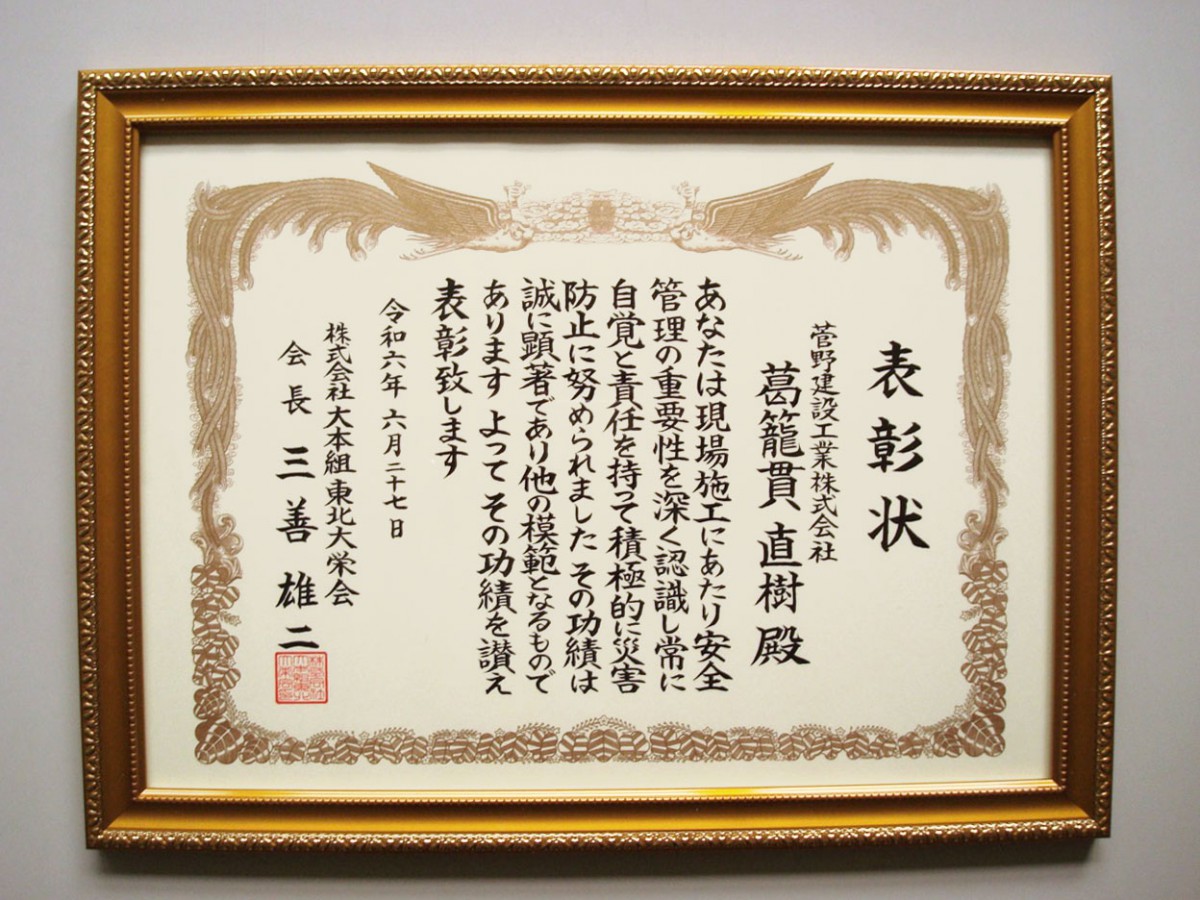 表彰状
菅野建設工業株式会社
葛籠貫直樹殿
あなたは現場施工にあたり安全
管理の重要性を深く認識し常に
自覚と責任を持って積極的に災害
防止に努められました その功績は
誠に顕著であり他の模範となるもので
あります よって その功績を讃え
表彰致します
令和六年 六月二十七日
株式会社大本組東北大栄会
会長 三善雄二